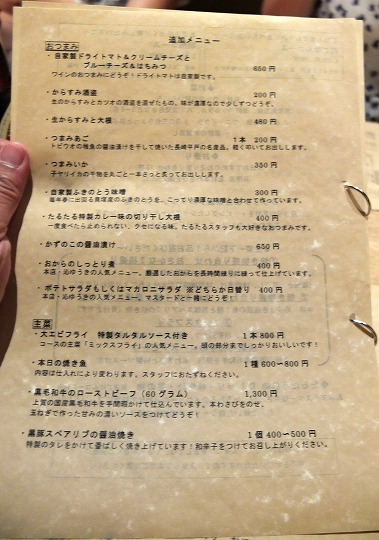 追加メニュー
おつまみ
・自家製ドライトマト＆クリームチーズと
ブルーチーズ＆はちみつ 650円
ワインのおつまみにどうぞ！ドライトマトは自家製です。
・からすみ酒盗 200円
生のからすみとカツオの酒盗を混ぜたもの。味が濃厚なので少しずつどうぞ。
・生からすみと大根 480円
・つまみあご 1本 200円
トビウオの稚魚の醤油漬けを干して焼いた長崎平戸の名産品。軽く叩いてお出しします。
・つまみいか 350円
子ヤリイカの干物を丸ごと一本さっと炙ってお出しします。
・自家製ふきのとう味噌 300円
毎年春に出回る貴重なふきのとうを、こってり濃厚な味噌と合わせて作っています。
・たるたる特製カレー味の切り干し大根 400円
一度食べたら止められない、クセになる味。たるたるスタッフも大好きなおつまみです。
・かずのこの醤油漬け 650円
・おからのしっとり煮 400円
本店・沁ゆうきの人気メニュー。厳選したおからを長時間練りに練って仕上げています。
・ポテトサラダもしくはマカロニサラダ ※どちらか日替り 400円
本店・沁ゆうきの人気メニュー。マスタードと一緒にどうぞ！
主菜
・大エビフライ 特製タルタルソース付き 1本800円
コースの主菜「ミックスフライ」の人気メニュー。頭の部分までしっかりおいしいです！
・本日の焼き魚 1種600～800円
内容は仕入れにより変わります。スタッフにおたずねください。
・黒毛和牛のローストビーフ（60グラム） 1,300円
上質の国産黒毛和牛を手間暇かけて仕込んでいます。本わさびをのせ、
玉ねぎで作った甘みの濃いソースをつけてどうぞ！
・黒豚スペアリブの醤油焼き 1個400～500円
特製のタレをかけて香ばしく焼き上げています！和辛子をつけてお召し上がりください。